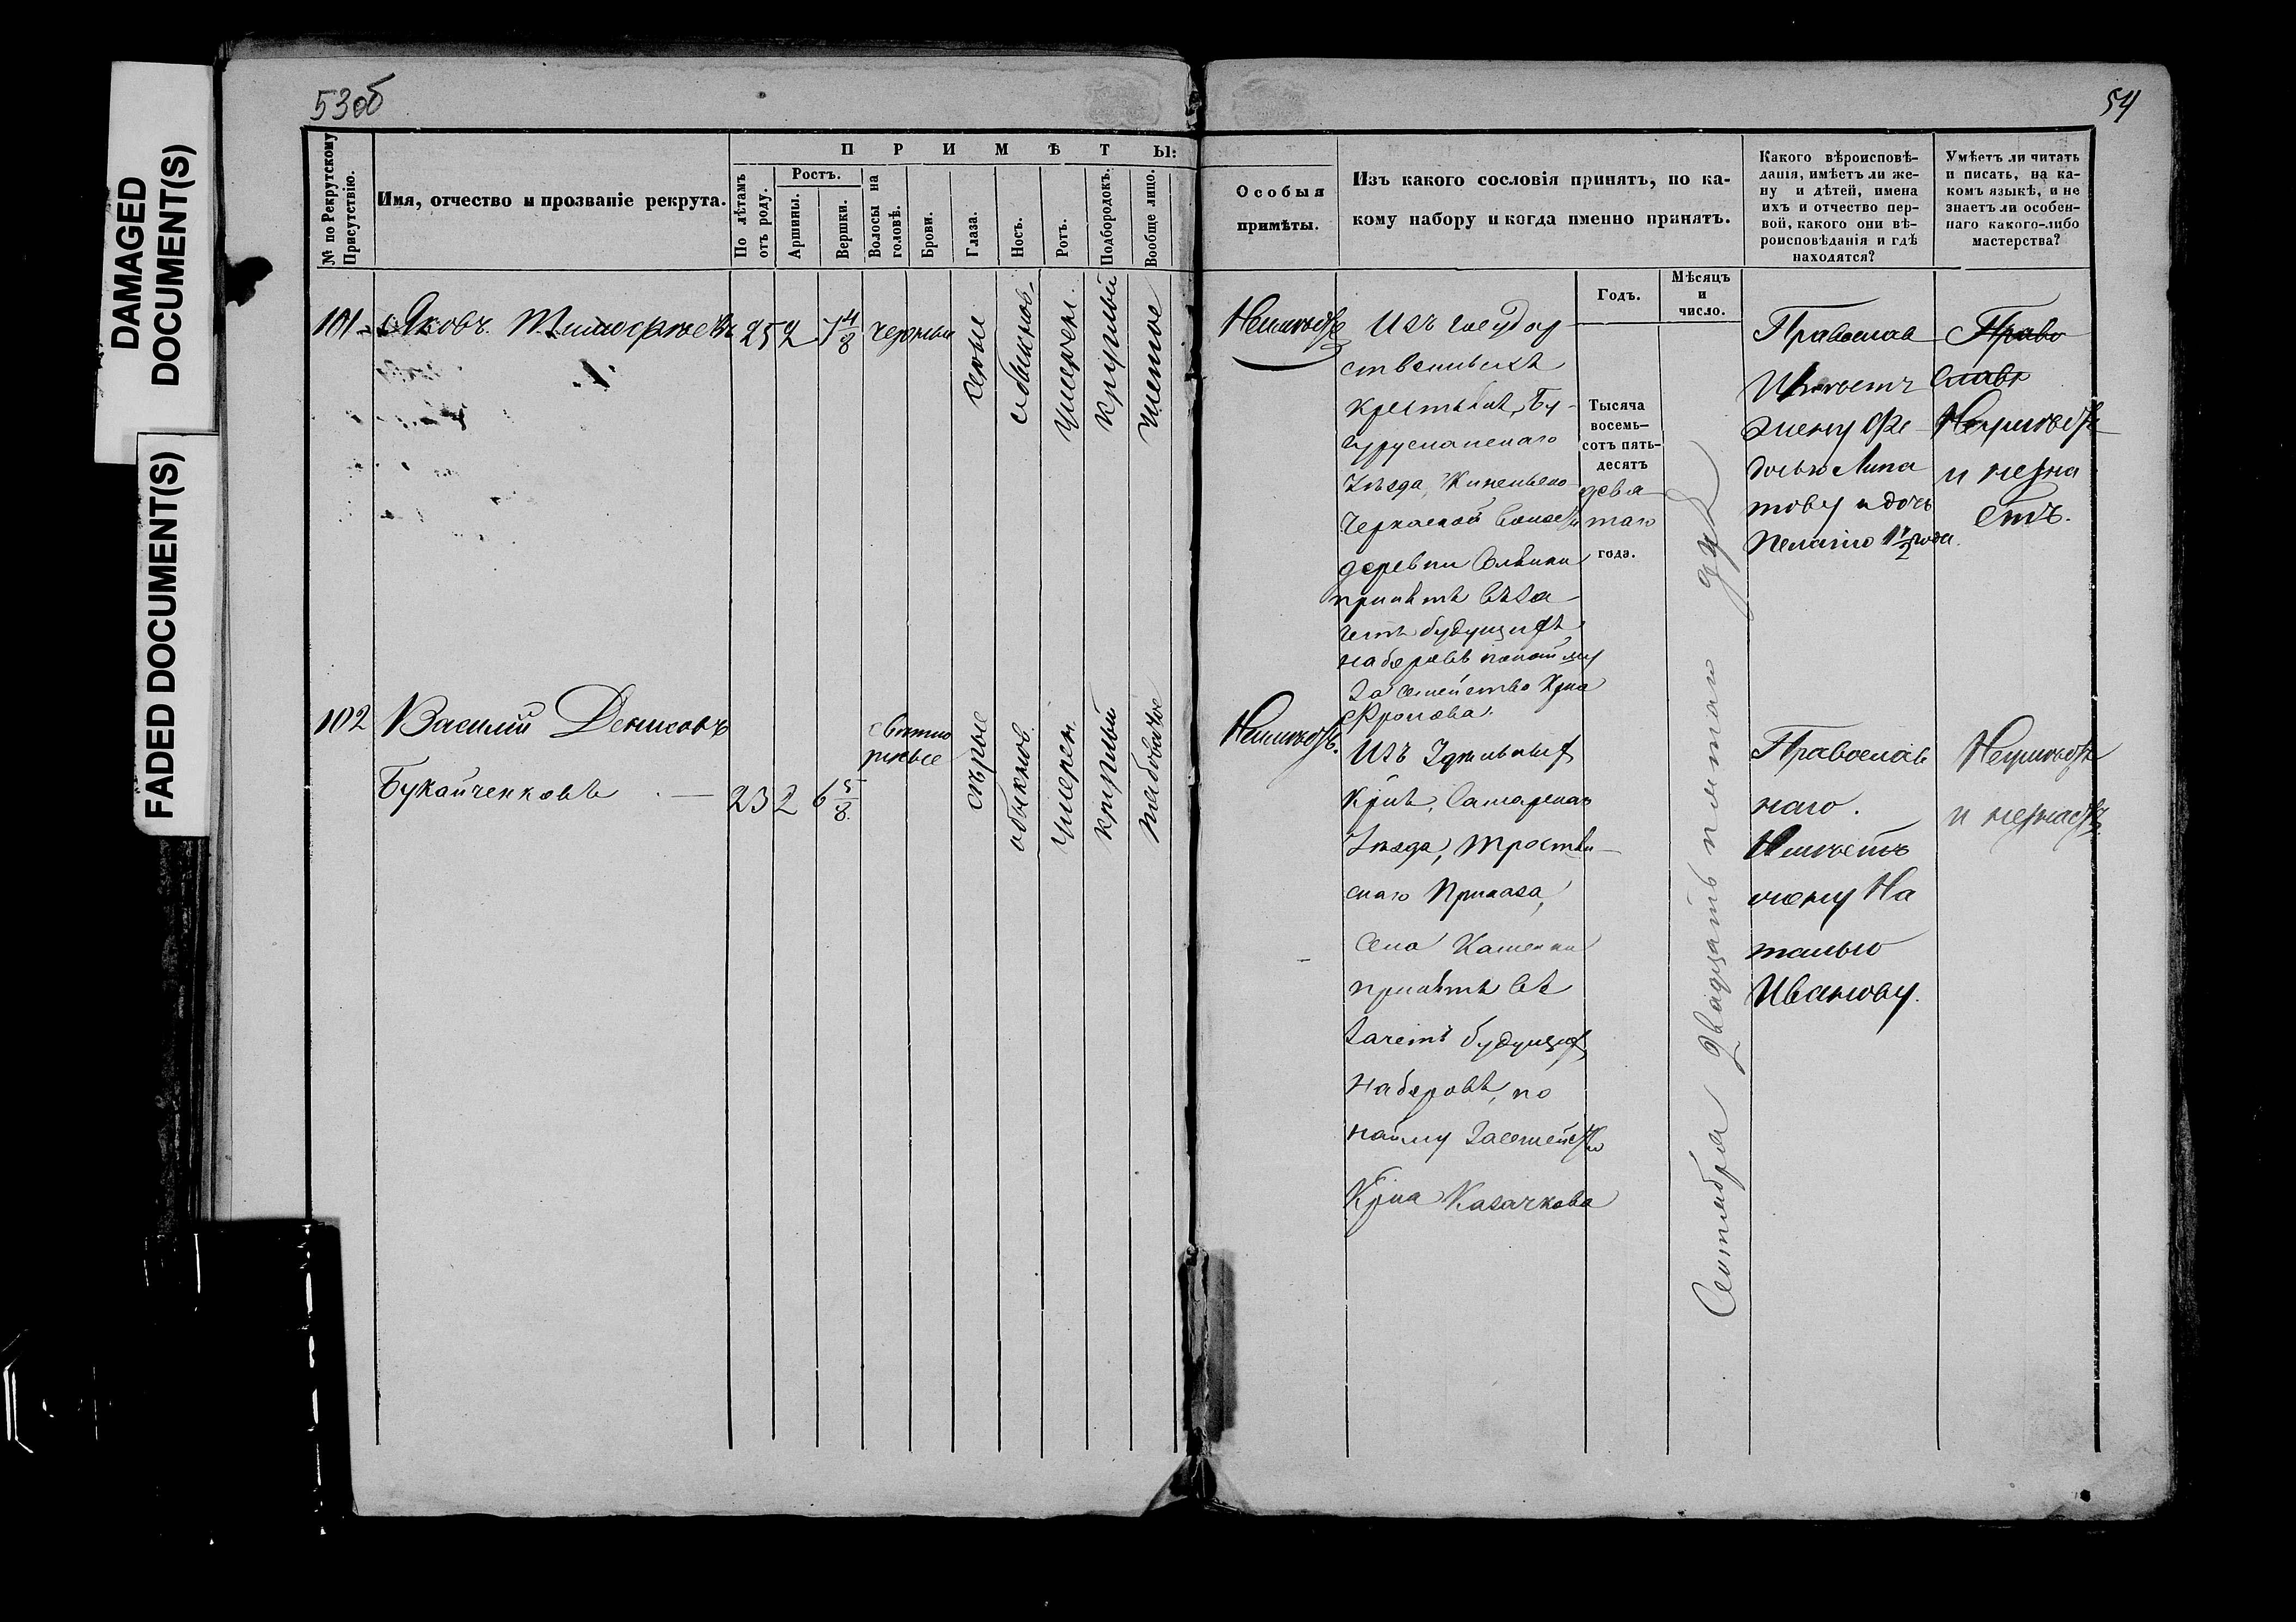 DAMAGED
DOCUMENT(S)
FADED DOCUMENT(S)
53об
54
№ по Рекрутскому
Присутствію.
Имя, отчество и прозваніе рекрута.
ПРИМѢТЫ:
По лѣтамъ
отъ роду.
Ростъ.
Аршины.
Вершки.
Волосы на
головѣ.
Брови.
Глаза.
Носъ.
Ротъ.
Подбородокъ.
Вообще лицо.
Особыя
примѣты.
Изъ какого сословія принятъ, по ка-
кому набору и когда именно принятъ.
Какого вѣроисповѣ-
данія, имѣетъ ли же-
ну и дѣтей, имена
ихъ и отчество пер-
вой, какого они вѣ-
роисповѣданія и гдѣ
находятся?
Умѣетъ ли читать
и писать, на ка-
комъ языкѣ, и не
знаетъ ли особен-
наго какого-либо
мастерства?
Годъ.
Мѣсяцъ
и
число.
101
Яковъ Тимофѣевъ
25 2 7 4/8
черные
серые
обыкнов.
умерен.
круглый
чистое
Неимѣетъ
Изъ государ
ственныхъ
крестьянъ, Бу-
гурусланскаго
Уѣзда, Кинельско
Черкаской волости
деревни
принятъ въ за
четъ будущихъ
наборовъ по найму
за семейство Крна
Фролова.
Тысяча
восемь-
сотъ пять-
десятъ
девя
таго
года.
Сентября двадцать пятаго
Православ
Имѣетъ
жену Фе
досью Липа
тову и дочь
Пелагію 1 1/2 года.
Право
славн
Неумѣетъ
и незна
етъ.
102
Василій Денисовъ
Букайченковъ
23 2 6 5/8
свѣтло
русые
сѣрые
обыкнов.
умерен.
круглый
рабоватое
Неимѣетъ.
Изъ Удѣльныхъ
Крнъ, Самарскаго
Уѣзда,
скаго Приказа,
села Каменки
принятъ въ
зачетъ будущихъ
наборовъ, по
найму за семейство
Крна Казачкова
Православ
наго.
Имѣетъ
жену На
талью
Иванову.
Неумѣетъ
и незнаетъ.